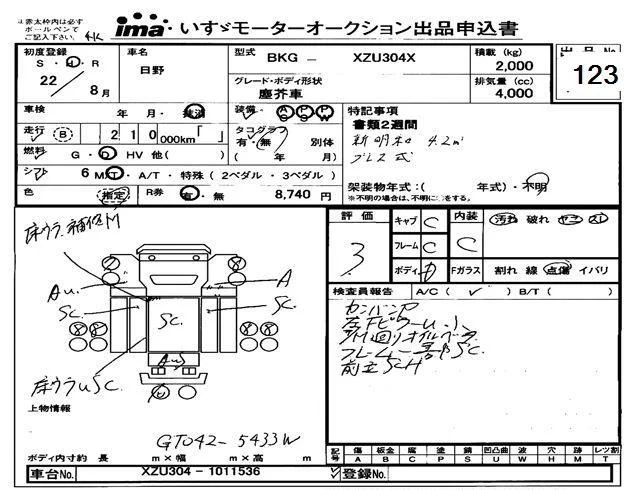 ※赤太枠内は必ず
ボールペンで
ご記入下さい。
ima いすゞモーターオークション出品申込書
初度登録
S・H・R
22 / 8月
車名
日野
型式
BKG - XZU304X
グレード・ボディ形状
塵芥車
積載 (kg)
2,000
排気量 (cc)
4,000
出品No
123
車検 年・月・抹消
走行 (B) 210000km「 」
燃料 G・D HV 他( )
シフト 6 MT・A/T・特殊(2ペダル・3ペダル)
色 指定 R券 有・無 8,740 円
装備 AC PS PW
タコグラフ
有・無 別体
( 年 月)
特記事項
書類2週間
新明和 4.2㎥
プレス式
架装物年式:( 年式)・不明
※不明の場合は、不明に○をする。
床ウラ補修M
Au
A
SC.
SC.
SC.
AuS
床ウラuSC.
上物情報
GT042-5433W
ボディ内寸約 長 m×幅 m×高 m
車台No. XZU304-1011536
評価
3
キャブ C
フレーム C
ボディ D
内装
C
汚れ 破れ ヤニ スレ
Fガラス 割れ 線 点傷 イバリ
検査員報告 A/C( ✓ ) B/T( )
カンバンP
フレーム一部SC.
前立SCH
記号 傷 板金 腐 塗 錆 凹凸曲 波 穴 跡 レツ割
A B C P S U W H M T
登録No.